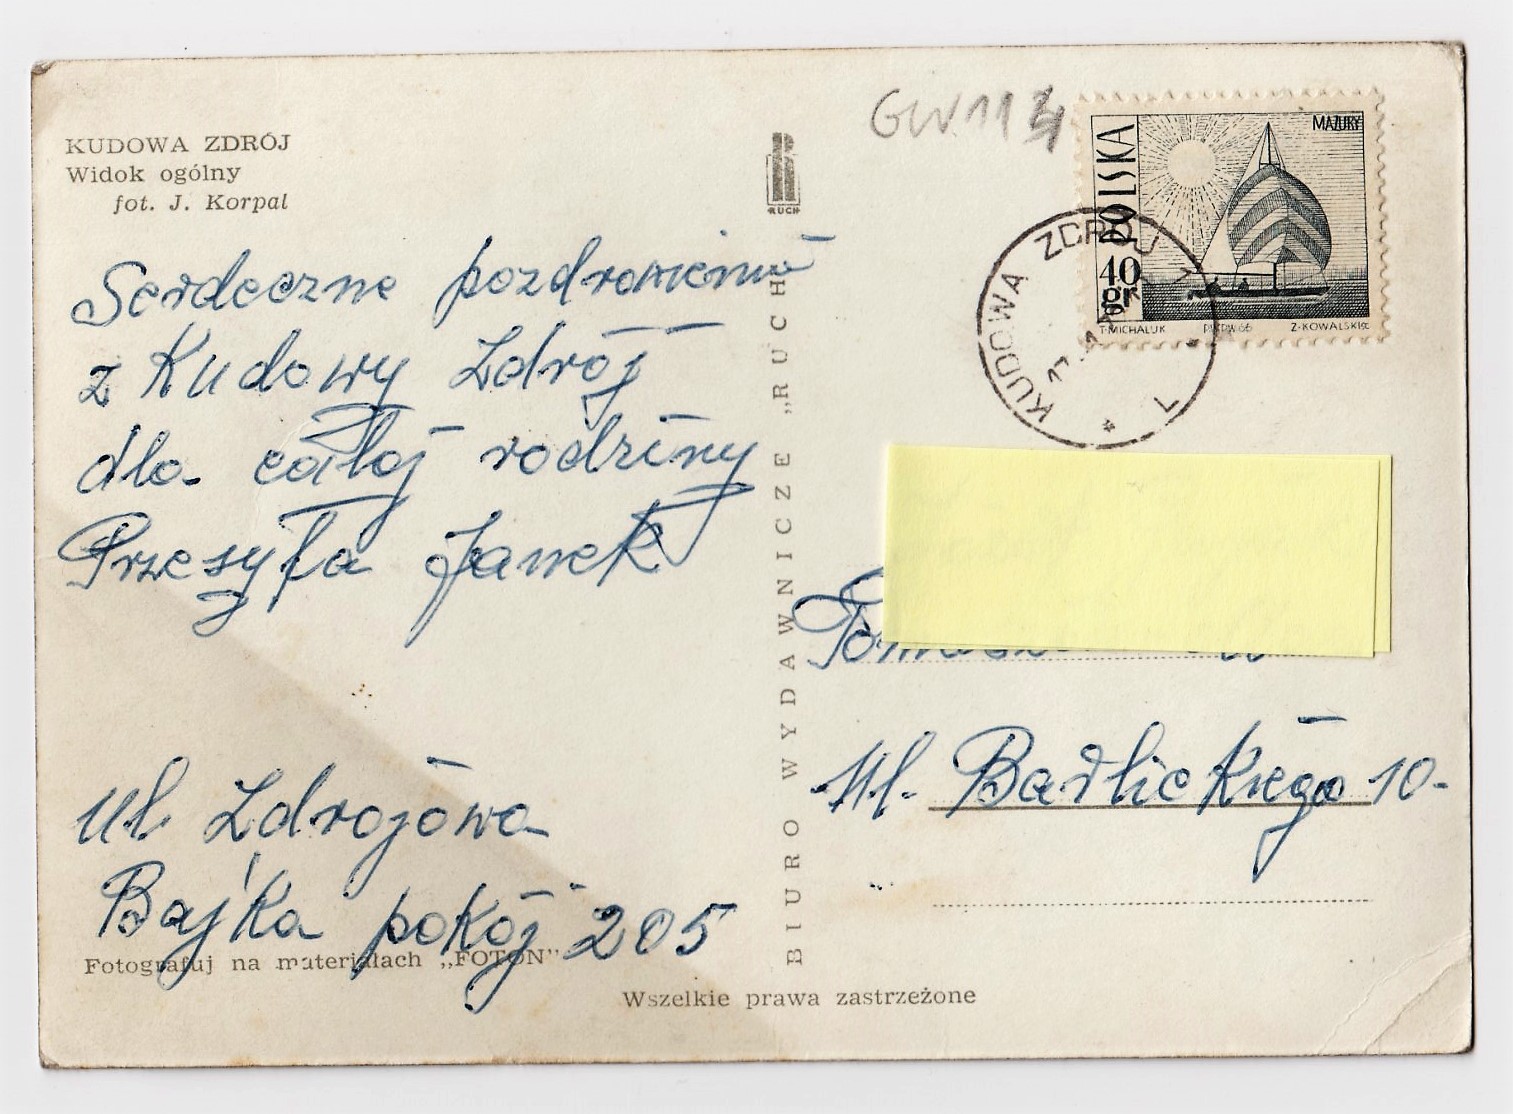 KUDOWA ZDRÓJ
Widok ogólny
fot. J. Korpal
RUCH
GW 11
POLSKA
MAZURY
40
gr
T·MICHALUK PWPW·66 Z·KOWALSKI sc
KUDOWA ZDRÓJ 1
Serdeczne pozdrowienia
z Kudowy Zdrój
dla całej rodziny
Przesyła Janek
ul. Zdrojowa
Bajka pokój 205
BIURO WYDAWNICZE „RUCH”
Ul. Barlickiego 10-
Fotografuj na materiałach „FOTON”
Wszelkie prawa zastrzeżone